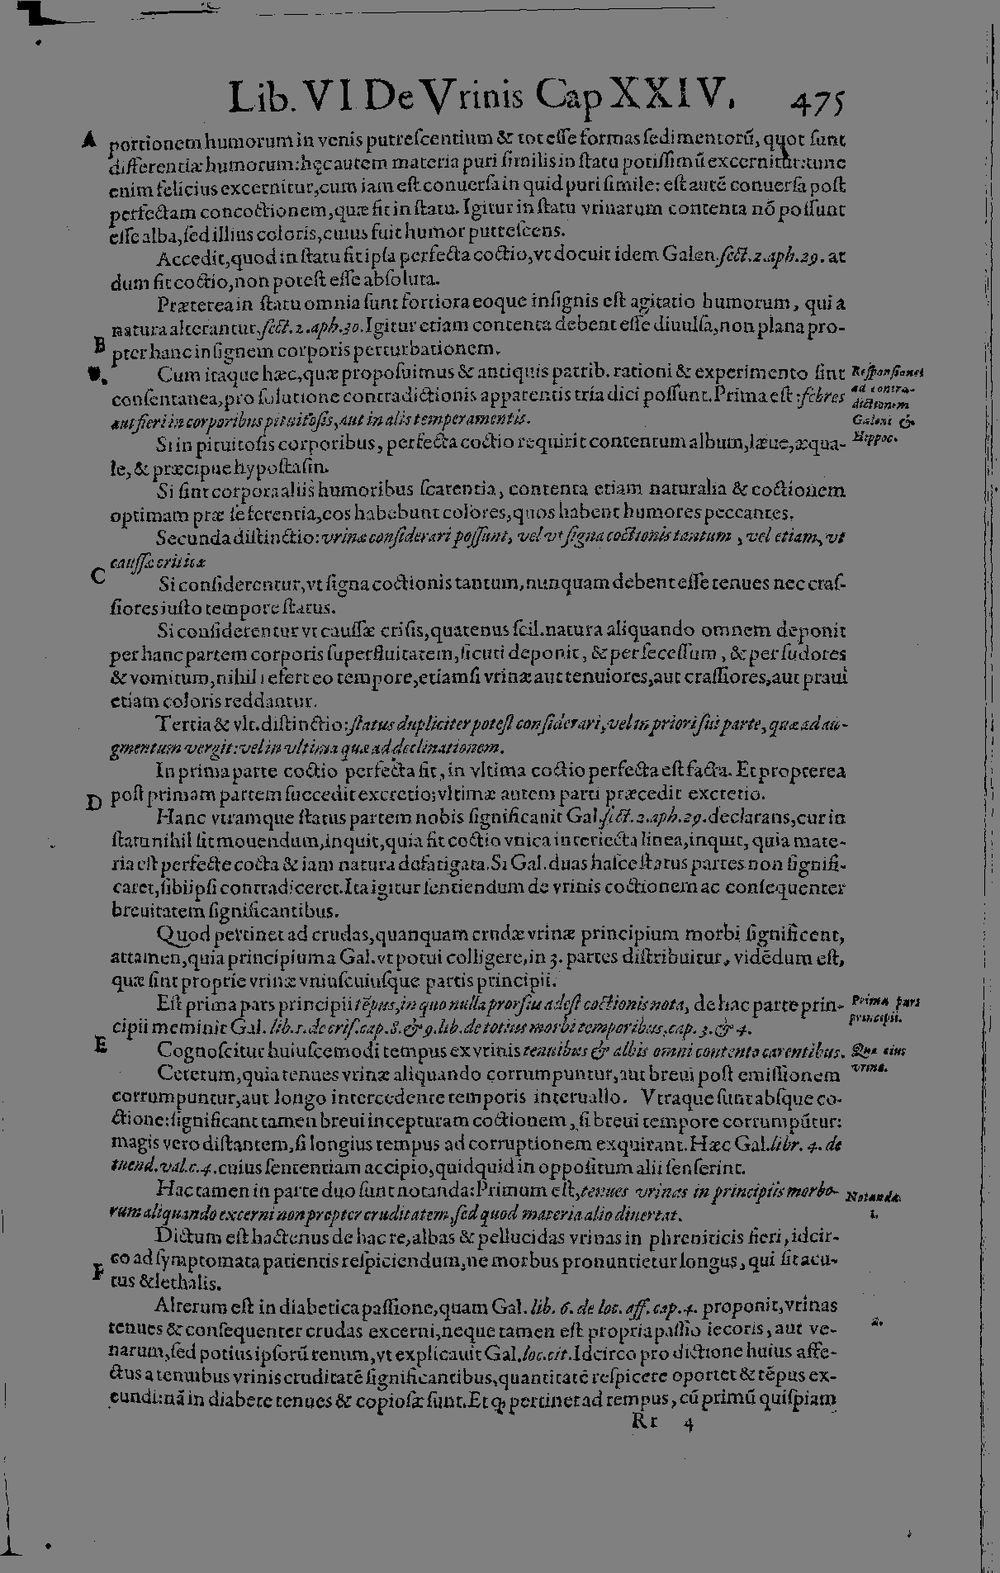 Lib. VI De Vrinis Cap XXIV. 475
A portionem humorum in venis putrescentium & tot esse formas sedimentorũ, quot sunt
differentiæ humorum: hęc autem materia puri similis in statu potissimũ excernitur: tunc
enim felicius excernitur, cum iam est conuersa in quid puri simile: est autẽ conuersa post
perfectam concoctionem, quæ fit in statu. Igitur in statu vrinarum contenta nõ possunt
esse alba, sed illius coloris, cuius fuit humor putrescens.
Accedit, quod in statu fit ipsa perfecta coctio, vt docuit idem Galen. sect. 2. aph. 29. at
dum fit coctio, non potest esse absoluta.
Præterea in statu omnia sunt fortiora eoque insignis est agitatio humorum, qui a
natura alterantur, sect. 2. aph. 30. Igitur etiam contenta debent esse diuulsa, non plana pro-
B pter hanc insignem corporis perturbationem.
Cum itaque hæc, quæ proposuimus & antiquis patrib. rationi & experimento sint
Responsiones
consentanea, pro solutione contradictionis apparentis tria dici possunt. Prima est: febres
ad contra-
dictionem
aut fieri in corporibus pituitosis, aut in aliis temperamentis.
Galeni &
Si in pituitosis corporibus, perfecta coctio requirit contentum album, læue, æqua-
Hippoc.
le, & præcipue hypostasin.
Si sint corpora aliis humoribus scatentia, contenta etiam naturalia & coctionem
optimam præ se ferentia, eos habebunt colores, quos habent humores peccantes.
Secunda distinctio: vrinæ considerari possunt, vel vt signa coctionis tantum, vel etiam, vt
caussæ criticæ
C Si considerentur, vt signa coctionis tantum, nunquam debent esse tenues nec cras-
siores iusto tempore status.
Si considerentur vt caussæ crisis, quatenus scil. natura aliquando omnem deponit
per hanc partem corporis superfluitatem, sicuti deponit, & per secessum, & per sudores
& vomitum, nihil refert eo tempore, etiamsi vrinæ aut tenuiores, aut crassiores, aut praui
etiam coloris reddantur.
Tertia & vlt. distinctio: status dupliciter potest considerari, vel in priori sui parte, quæ ad au-
gmentum vergit: vel in vltima quæ ad declinationem.
In prima parte coctio perfecta fit, in vltima coctio perfecta est facta. Et propterea
D post primam partem succedit excretio; vltimæ autem parti præcedit excretio.
Hanc vtramque status partem nobis significauit Gal. sect. 2. aph. 29. declarans, cur in
statu nihil sit mouendum, inquit, quia fit coctio vnica interiecta linea, inquit, quia mate-
ria est perfecte cocta & iam natura defatigata. Si Gal. duas hasce status partes non signifi-
caret, sibi ipsi contradiceret. Ita igitur sentiendum de vrinis coctionem ac consequenter
breuitatem significantibus.
Quod pertinet ad crudas, quanquam crudæ vrinæ principium morbi significent,
attamen, quia principium a Gal. vt potui colligere, in 3. partes distribuitur, vidẽdum est,
quæ sint proprie vrinæ vniuscuiusque partis principii.
Est prima pars principii tẽpus, in quo nulla prorsus adest coctionis nota, de hac parte prin-
Prima pars
principii.
cipii meminit Gal. lib. 1. de cris. cap. 8. & 9. lib. de totius morbi temporibus, cap. 3. & 4.
E Cognoscitur huiuscemodi tempus ex vrinis tenuibus & albis omni contento carentibus.
Quæ eius
vrinæ.
Ceterum, quia tenues vrinæ aliquando corrumpuntur, aut breui post emissionem
corrumpuntur, aut longo intercedente temporis interuallo. Vtraque sunt absque co-
ctione: significant tamen breui incepturam coctionem, si breui tempore corrumpũtur:
magis vero distantem, si longius tempus ad corruptionem exquirant. Hæc Gal. libr. 4. de
tuend. val. c. 4. cuius sententiam accipio, quidquid in oppositum alii senserint.
Hac tamen in parte duo sunt notanda: Primum est, tenues vrinas in principiis morbo-
Notanda.
1.
rum aliquando excerni non propter cruditatem, sed quod materia alio diuertat.
Dictum est hactenus de hac re, albas & pellucidas vrinas in phreniticis fieri, idcir-
F co ad symptomata patientis respiciendum, ne morbus pronuntietur longus, qui sit acu-
tus & lethalis.
Alterum est in diabetica passione, quam Gal. lib. 6. de loc. aff. cap. 4. proponit, vrinas
2.
tenues & consequenter crudas excerni, neque tamen est propria passio iecoris, aut ve-
narum, sed potius ipsorũ renum, vt explicauit Gal. loc. cit. Idcirco pro dictione huius affe-
ctus a tenuibus vrinis cruditatẽ significantibus, quantitatẽ respicere oportet & tẽpus ex-
eundi: nã in diabete tenues & copiosæ sunt. Et q pertinet ad tempus, cũ primũ quispiam
Rr 4